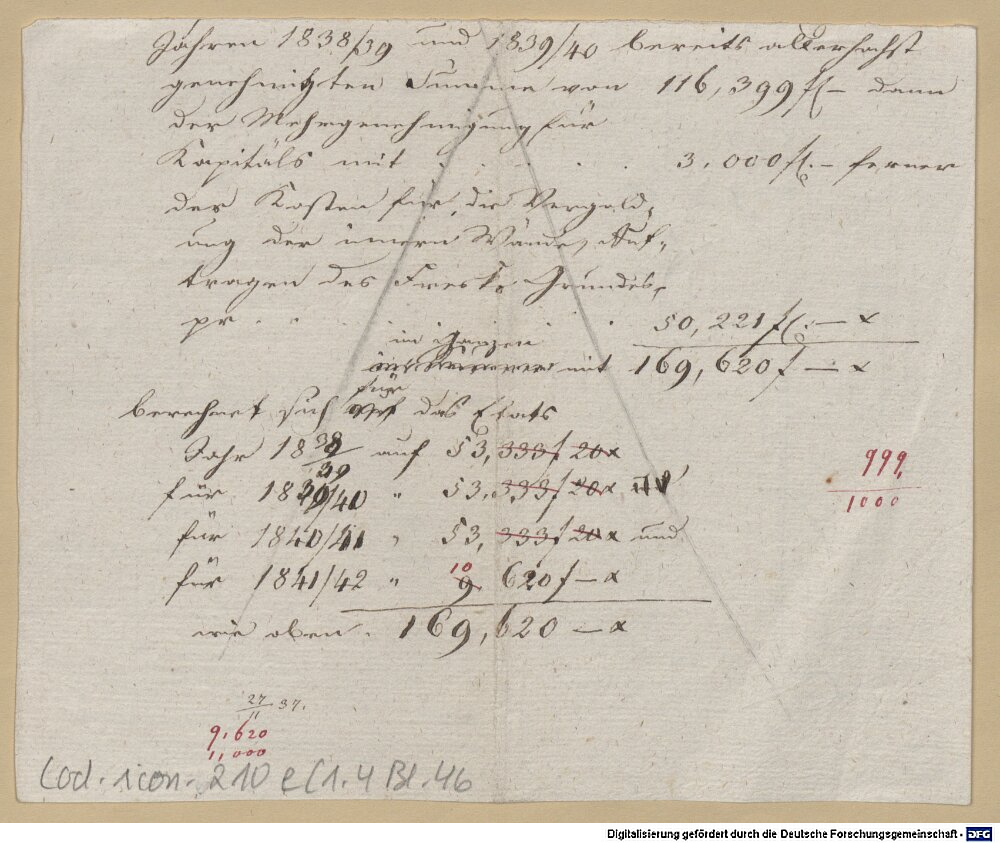 Jahren 1838/39 und 1839/40 bereits allerhöchst
genehmigten Summe von 116,399 f – dann
der Mehrgenehmigung für
Kapitäls mit . . . . 3,000 f. – ferner
der Kosten für die Vergold-
ung der innern Wände, Auf-
tragen des Fresko Grundes,
pr . . . . 50,221 f. — x
im Ganzen
mit 169,620 f — x
für
berechnet sich auf das Etats
Jahr 1838/39 auf 53,333 f 20 x
für 1839/40 " 53,333 f 20 x
für 1840/41 " 53,333 f 20 x und
für 1841/42 " 9 620 f — x
10
wie oben . 169,620 — x
999,
1000
27/11 37.
9,620
1,000
Cod. icon. 210 e (1.4 Bl. 46
Digitalisierung gefördert durch die Deutsche Forschungsgemeinschaft - DFG